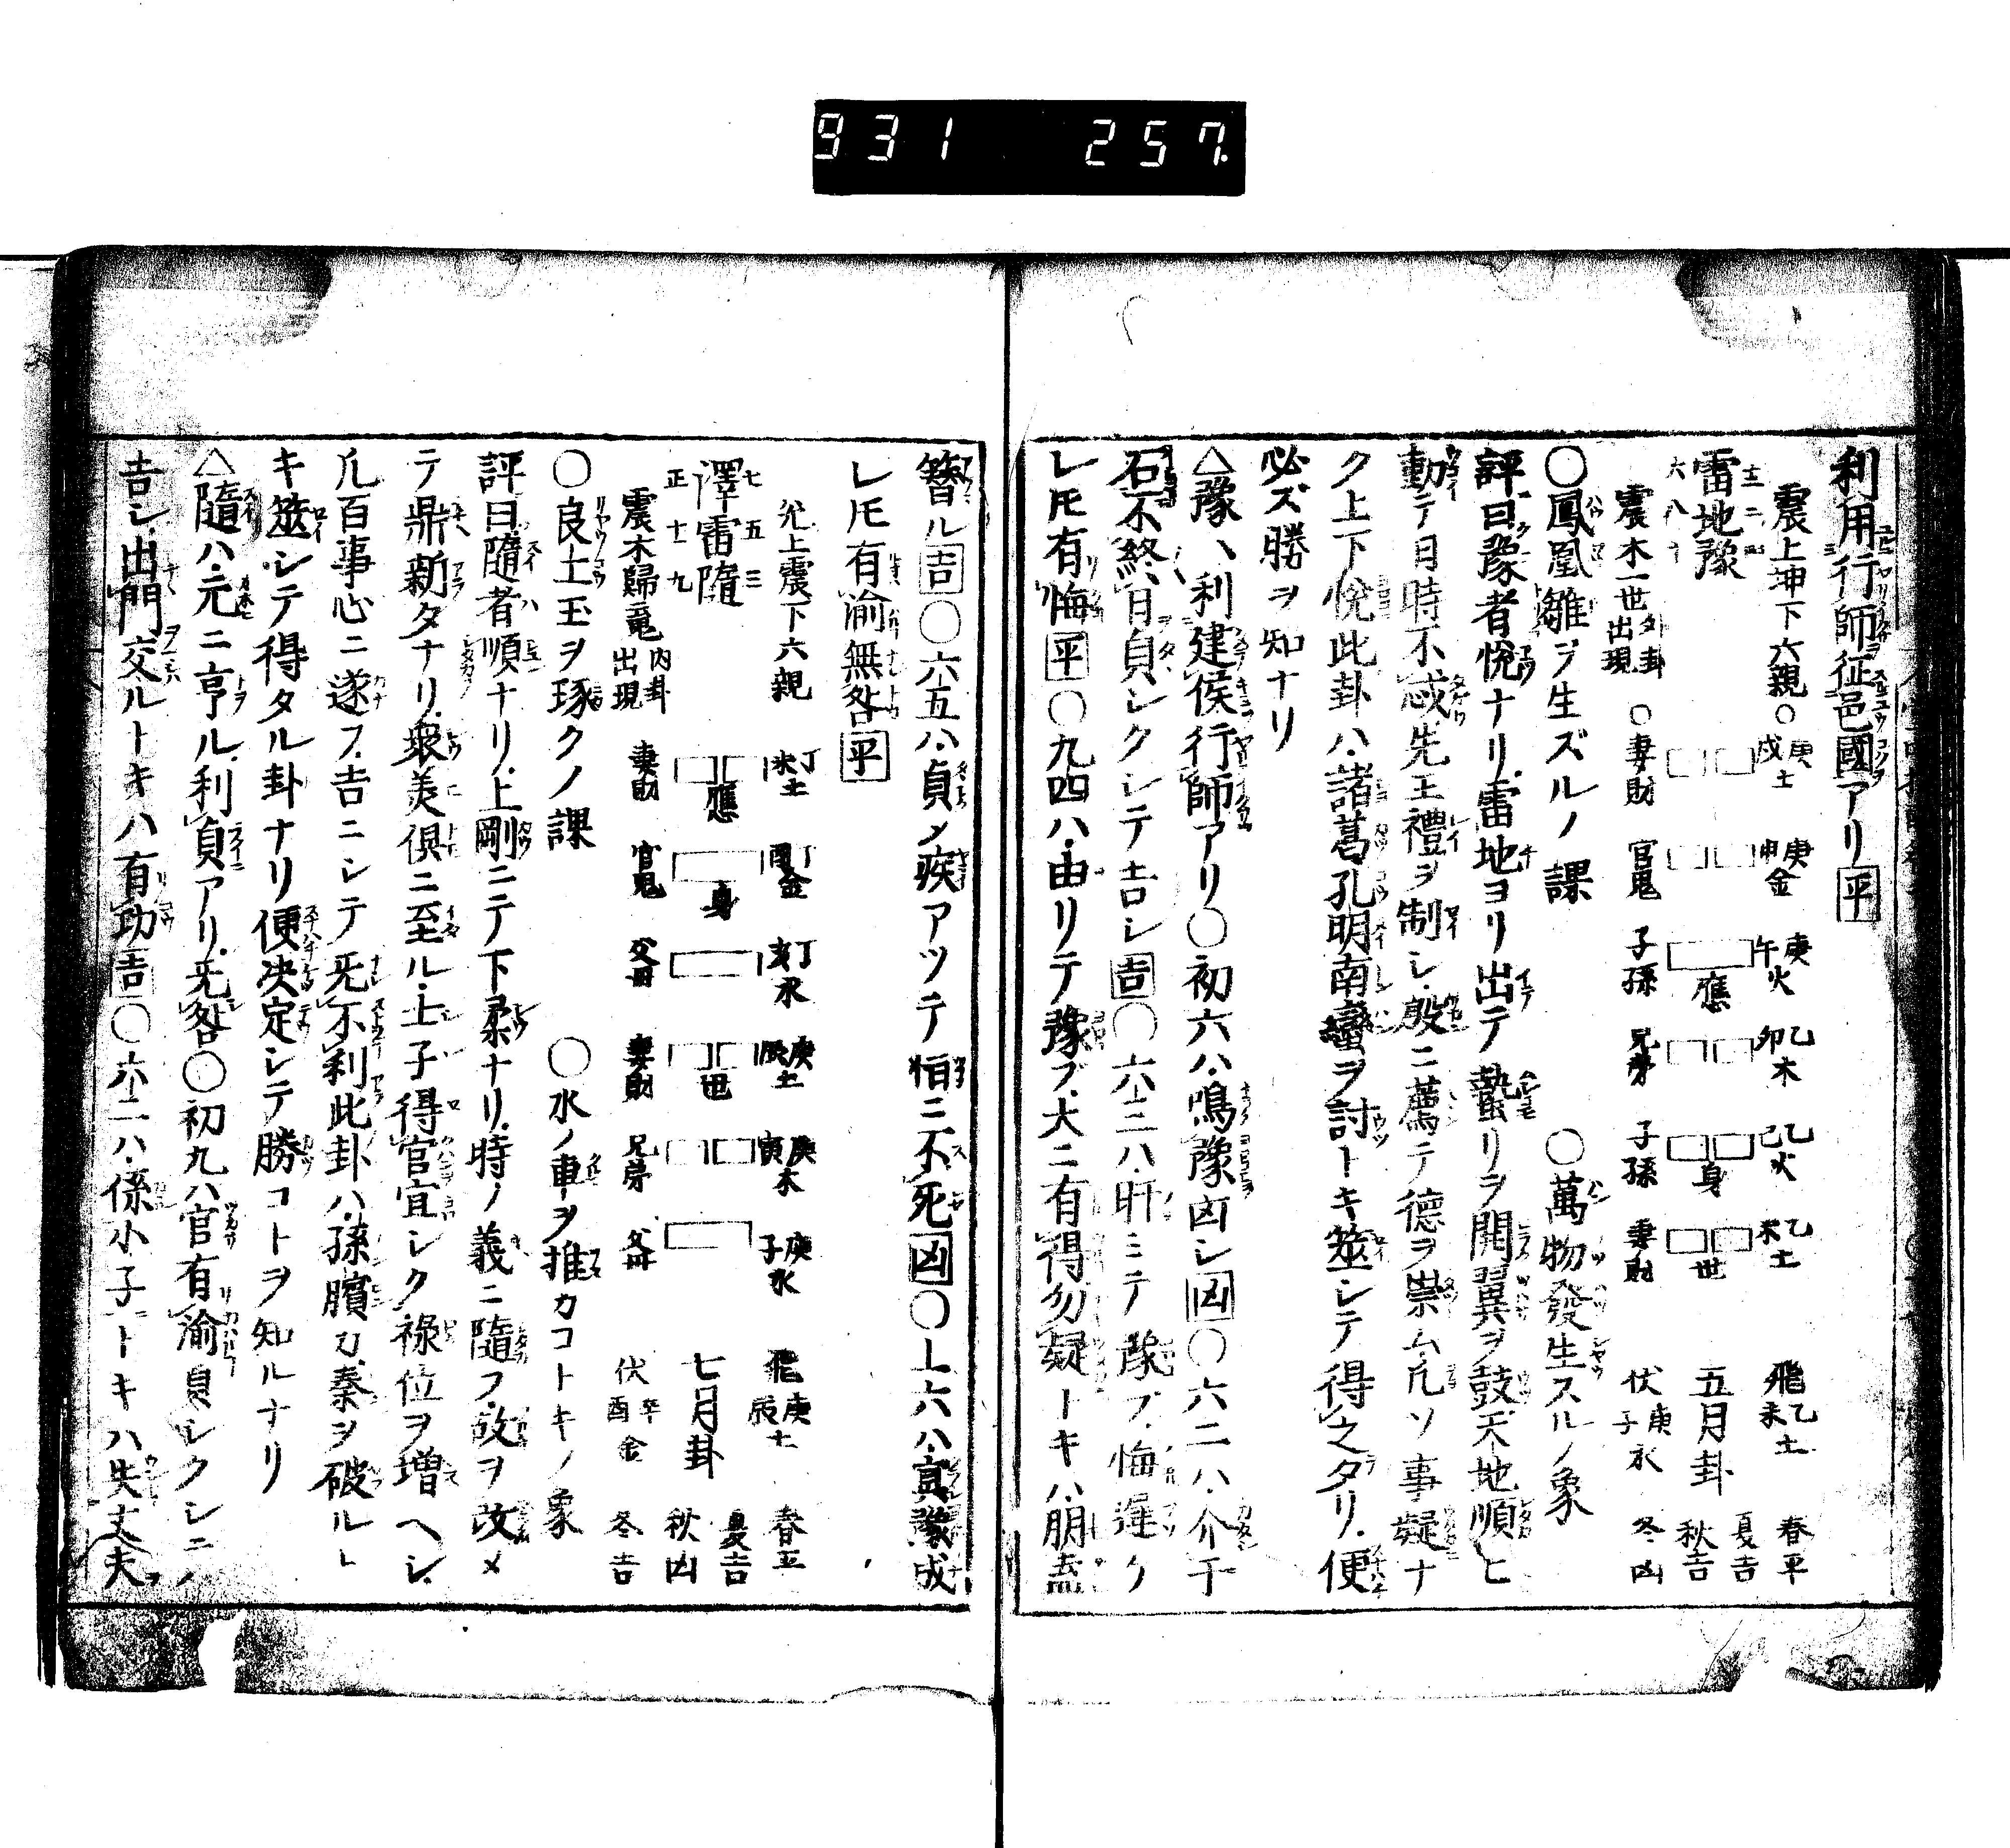 931 257
利用行師征邑國アリ平
震上坤下六親
雷地豫
震木一世外卦出現
○妻財 官鬼 子孫 兄弟 子孫 妻財
○庚戌土 庚申金 庚午火 乙卯木 乙巳火 乙未土
應 身 世
飛乙未土
五月卦
伏庚子水
春平 夏吉 秋吉 冬凶
○鳳凰雛ヲ生ズルノ課 ○萬物發生スルノ象
評曰豫者悅ナリ雷地ヨリ出テ蟄リヲ開翼ヲ鼓天地順ヒ
動テ日時不忒先王禮ヲ制シ殷ニ薦テ德ヲ崇ム凡ソ事疑ナ
ク上下悅此卦ハ諸葛孔明南蠻ヲ討トキ筮シテ得之タリ便
必ズ勝ヲ知ナリ
△豫ハ利建侯行師アリ○初六ハ鳴豫凶シ凶○六二ハ介于
石不終日貞シクシテ吉シ吉○六三ハ盱ミテ豫ブ悔遲ケ
レ𪜈有悔平○九四ハ由リテ豫ブ大ニ有得勿疑トキハ朋盍
簪ル吉○六五ハ貞ノ疾アツテ恒ニ不死凶○上六ハ冥豫成
レ𪜈有渝無咎平
兌上震下六親
七五三
澤雷隨
正十十九
震木歸䰟內卦出現
妻財 官鬼 父母 妻財 兄弟 父母
丁未土 丁酉金 丁亥水 庚辰土 庚寅木 庚子水
應 身 世
飛庚辰土
七月卦
伏辛酉金
春平 夏吉 秋凶 冬吉
○良土玉ヲ琢クノ課 ○水ノ車ヲ推カコトキノ象
評曰隨者順ナリ上剛ニテ下柔ナリ時ノ義ニ隨フ故ヲ改メ
テ鼎新タナリ衆美俱ニ至ル士子得官宜シク祿位ヲ增ヘシ
凡百事心ニ遂フ吉ニシテ无不利此卦ハ孫臏カ秦ヲ破ルト
キ筮シテ得タル卦ナリ便決定シテ勝コトヲ知ルナリ
△隨ハ元ニ亨ル利貞アリ无咎○初九ハ官有渝貞シクシテ
吉シ出門交ルトキハ有功吉○六二ハ係小子トキハ失丈夫